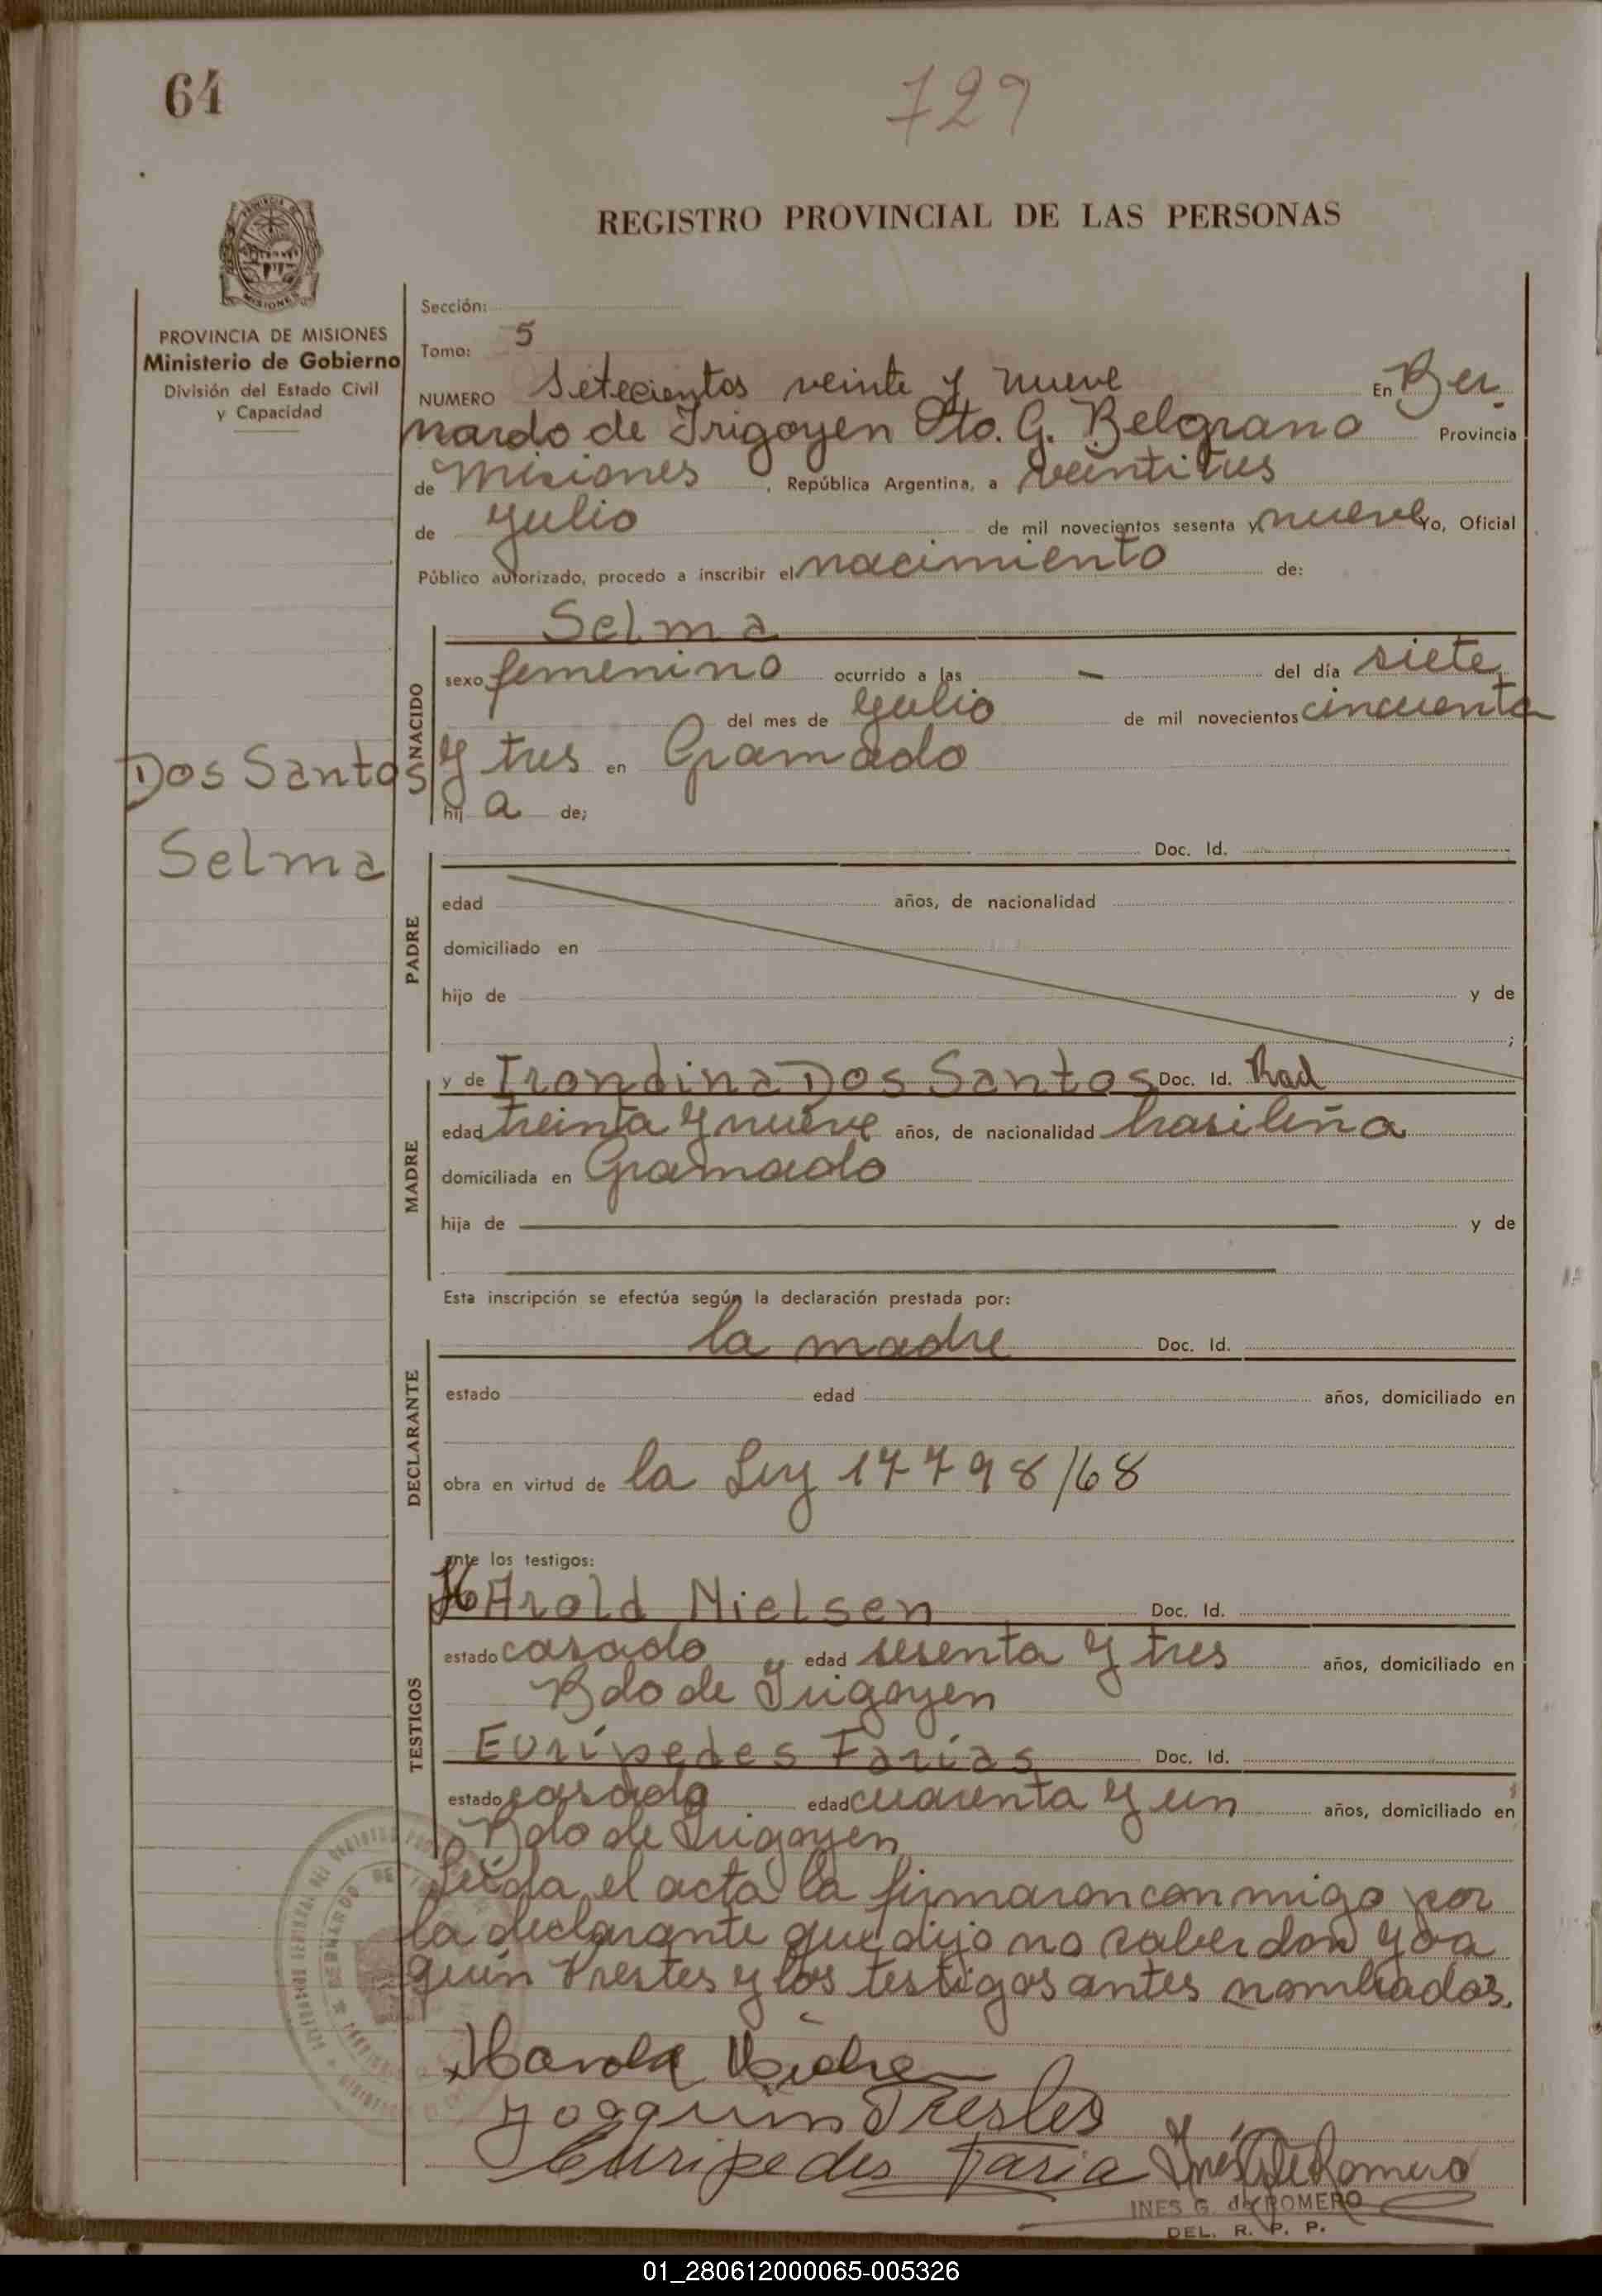 64
729
REGISTRO PROVINCIAL DE LAS PERSONAS
PROVINCIA DE MISIONES
Ministerio de Gobierno
División del Estado Civil
y Capacidad
Sección:
Tomo: 5
NUMERO Setecientos veinte y nueve En Ber
nardo de Irigoyen Dto. G. Belgrano Provincia
de Misiones, República Argentina, a veintitres
de Julio de mil novecientos sesenta y nueve Yo, Oficial
Público autorizado, procedo a inscribir el nacimiento de:
NACIDO
Selma
sexo femenino ocurrido a las — del día siete
del mes de Julio de mil novecientos cincuenta
y tres en Gramado
hij a de;
Dos Santos
Selma
PADRE
Doc. Id.
edad años, de nacionalidad
domiciliado en
hijo de y de
;
MADRE
y de Irondina Dos Santos Doc. Id. Rad
edad treinta y nueve años, de nacionalidad brasileña
domiciliada en Gramado
hija de y de
Esta inscripción se efectúa según la declaración prestada por:
DECLARANTE
la madre Doc. Id.
estado edad años, domiciliado en
obra en virtud de la Ley 17798/68
ante los testigos:
TESTIGOS
HArold Nielsen Doc. Id.
estado casado edad sesenta y tres años, domiciliado en
Bdo de Irigoyen
Eurípedes Farías Doc. Id.
estado casado edad cuarenta y un años, domiciliado en
Bdo de Irigoyen
Leída el acta la firmaron conmigo por
la declarante que dijo no saber don Joa
quin Prestes y los testigos antes nombrados.
Harold Nielsen
Joaquim Prestes
Euripedes Faria
INES G. de ROMERO
DEL. R. P. P.
01_280612000065-005326